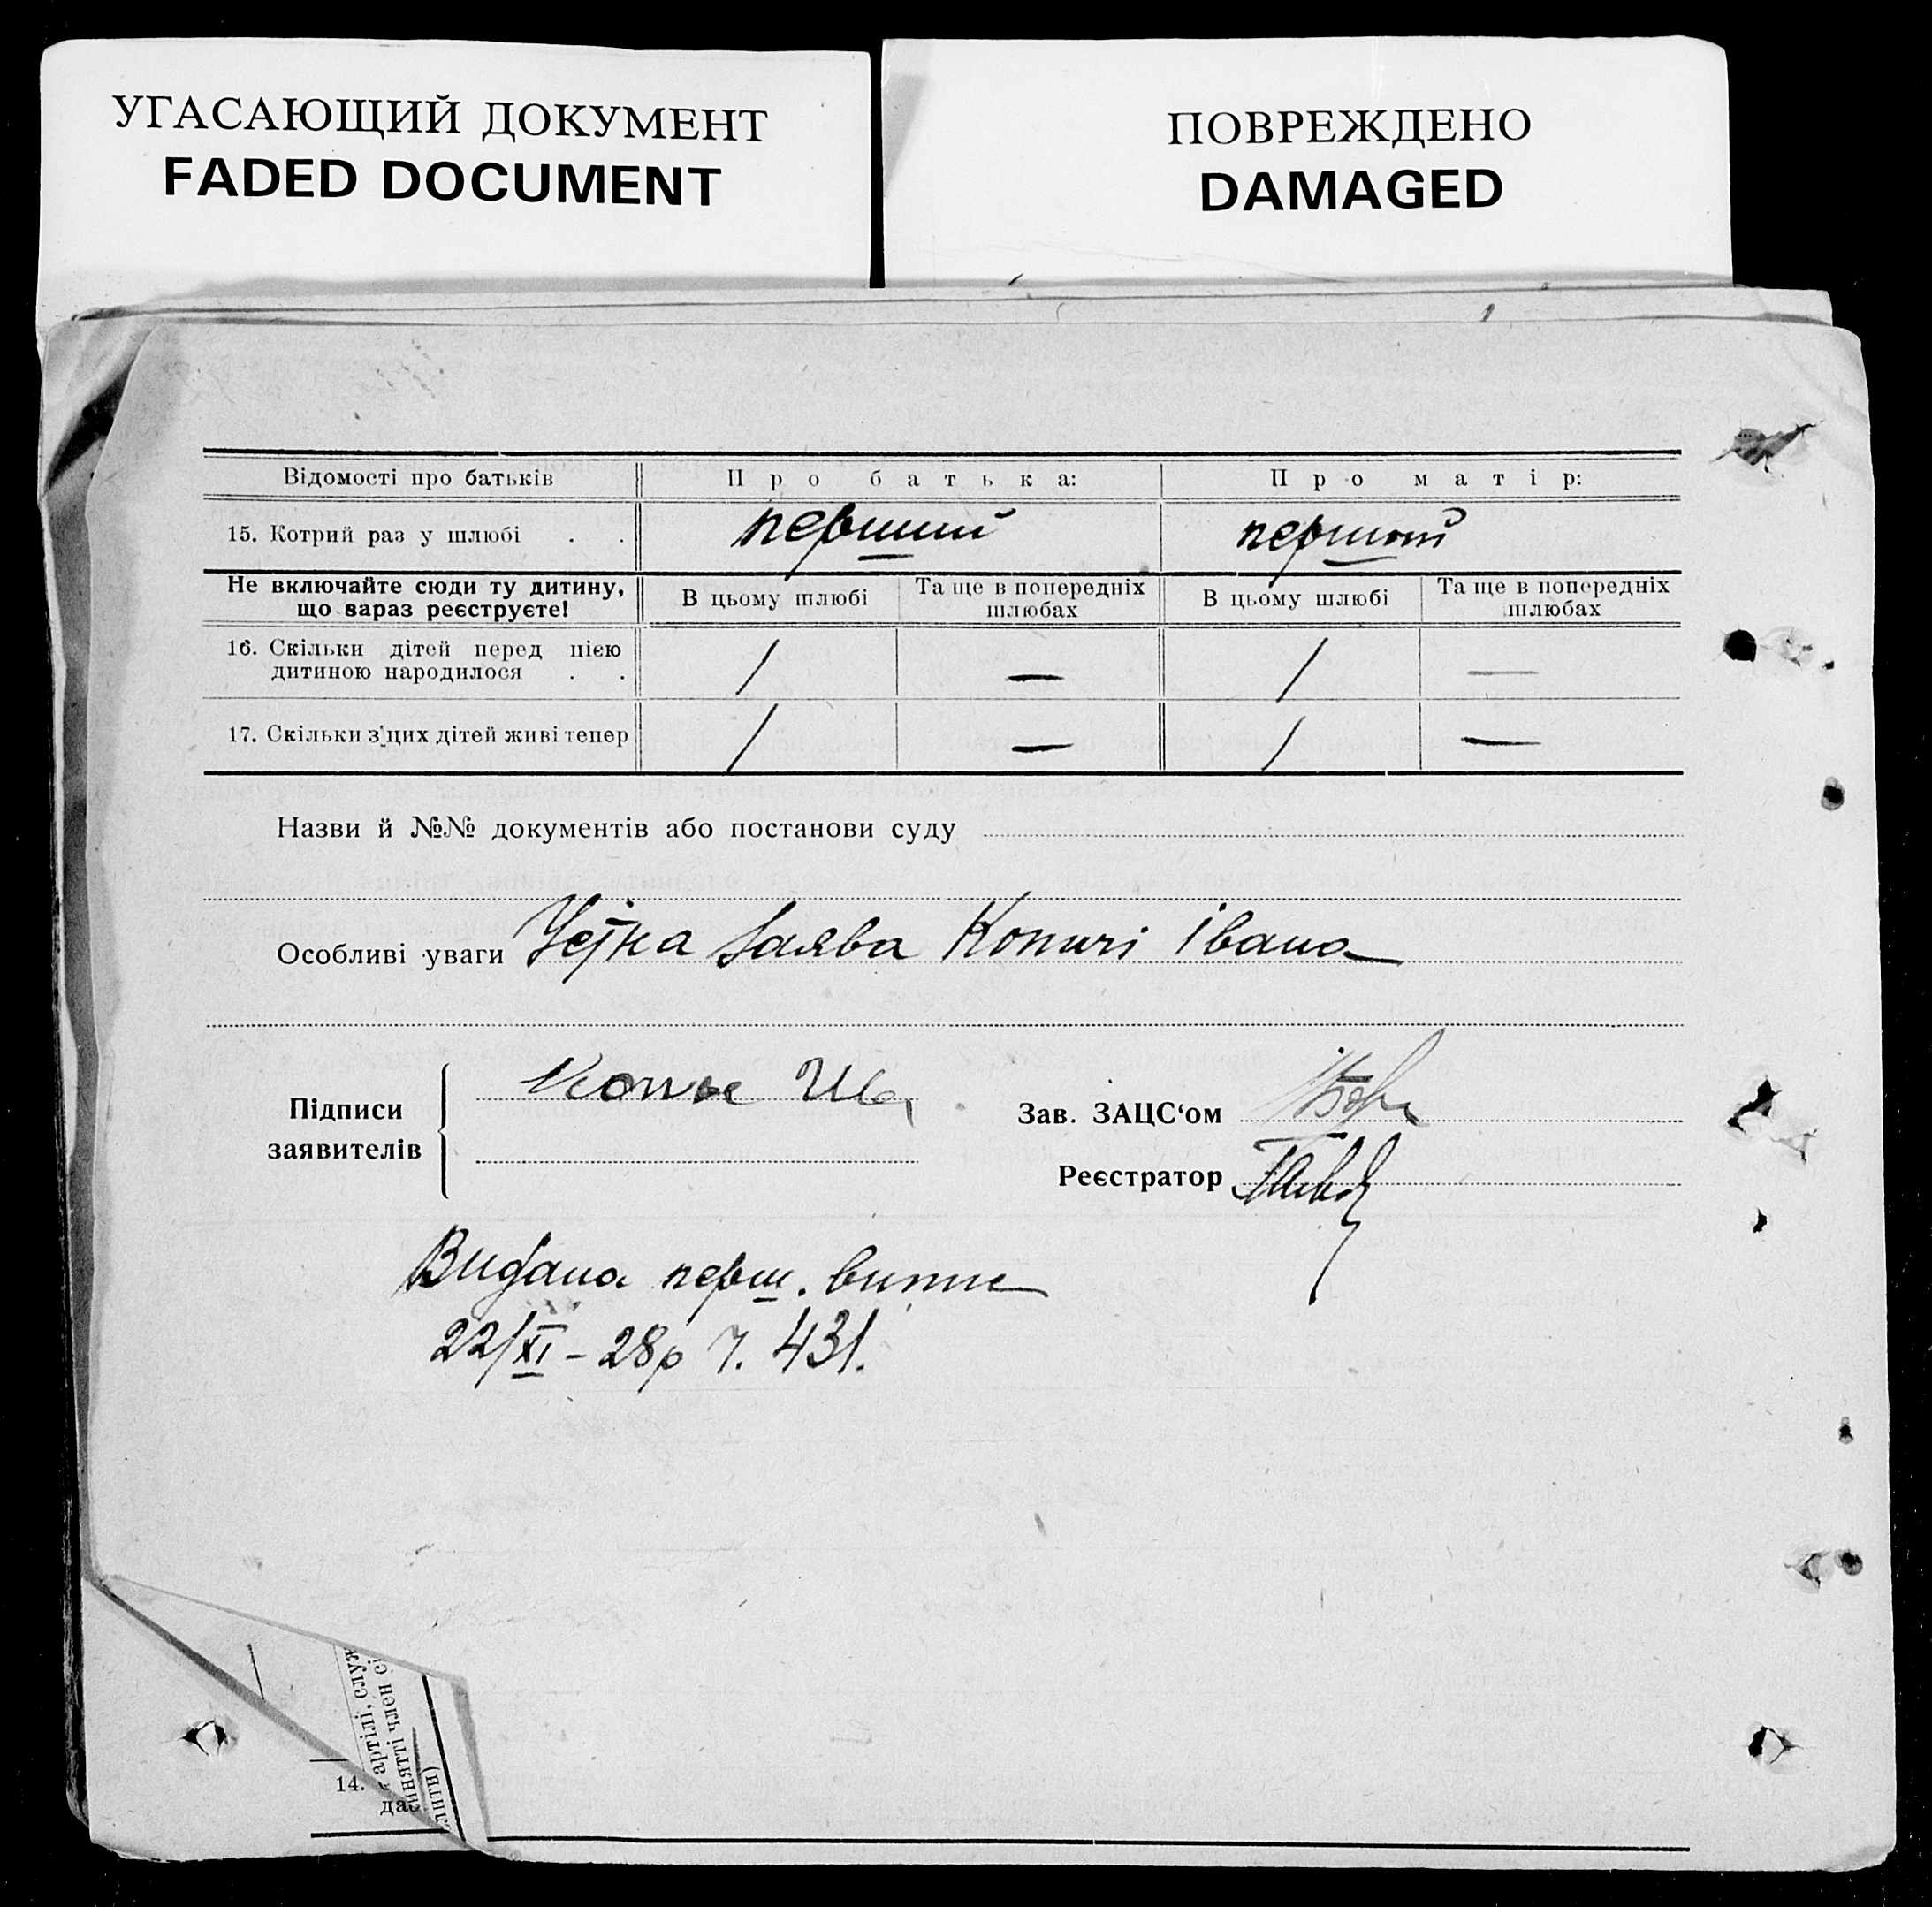 УГАСАЮЩИЙ ДОКУМЕНТ
FADED DOCUMENT
ПОВРЕЖДЕНО
DAMAGED
Відомості про батьків Про батька: Про матір:
15. Котрий раз у шлюбі . . перший перший
Не включайте сюди ту дитину, що зараз реєструєте! В цьому шлюбі Та ще в попередніх шлюбах В цьому шлюбі Та ще в попередніх шлюбах
16. Скільки дітей перед цією
дитиною народилося . . 1 — 1 —
17. Скільки з цих дітей живі тепер 1 — 1 —
Назви й №№ документів або постанови суду
Особливі уваги Устна заява Копичі Івана
Підписи
заявителів
Зав. ЗАЦС‘ом
Реєстратор
Видана перш. випис
22/XI – 28р Ч. 431.
артілі, служ
член сі
лити)
14.
да